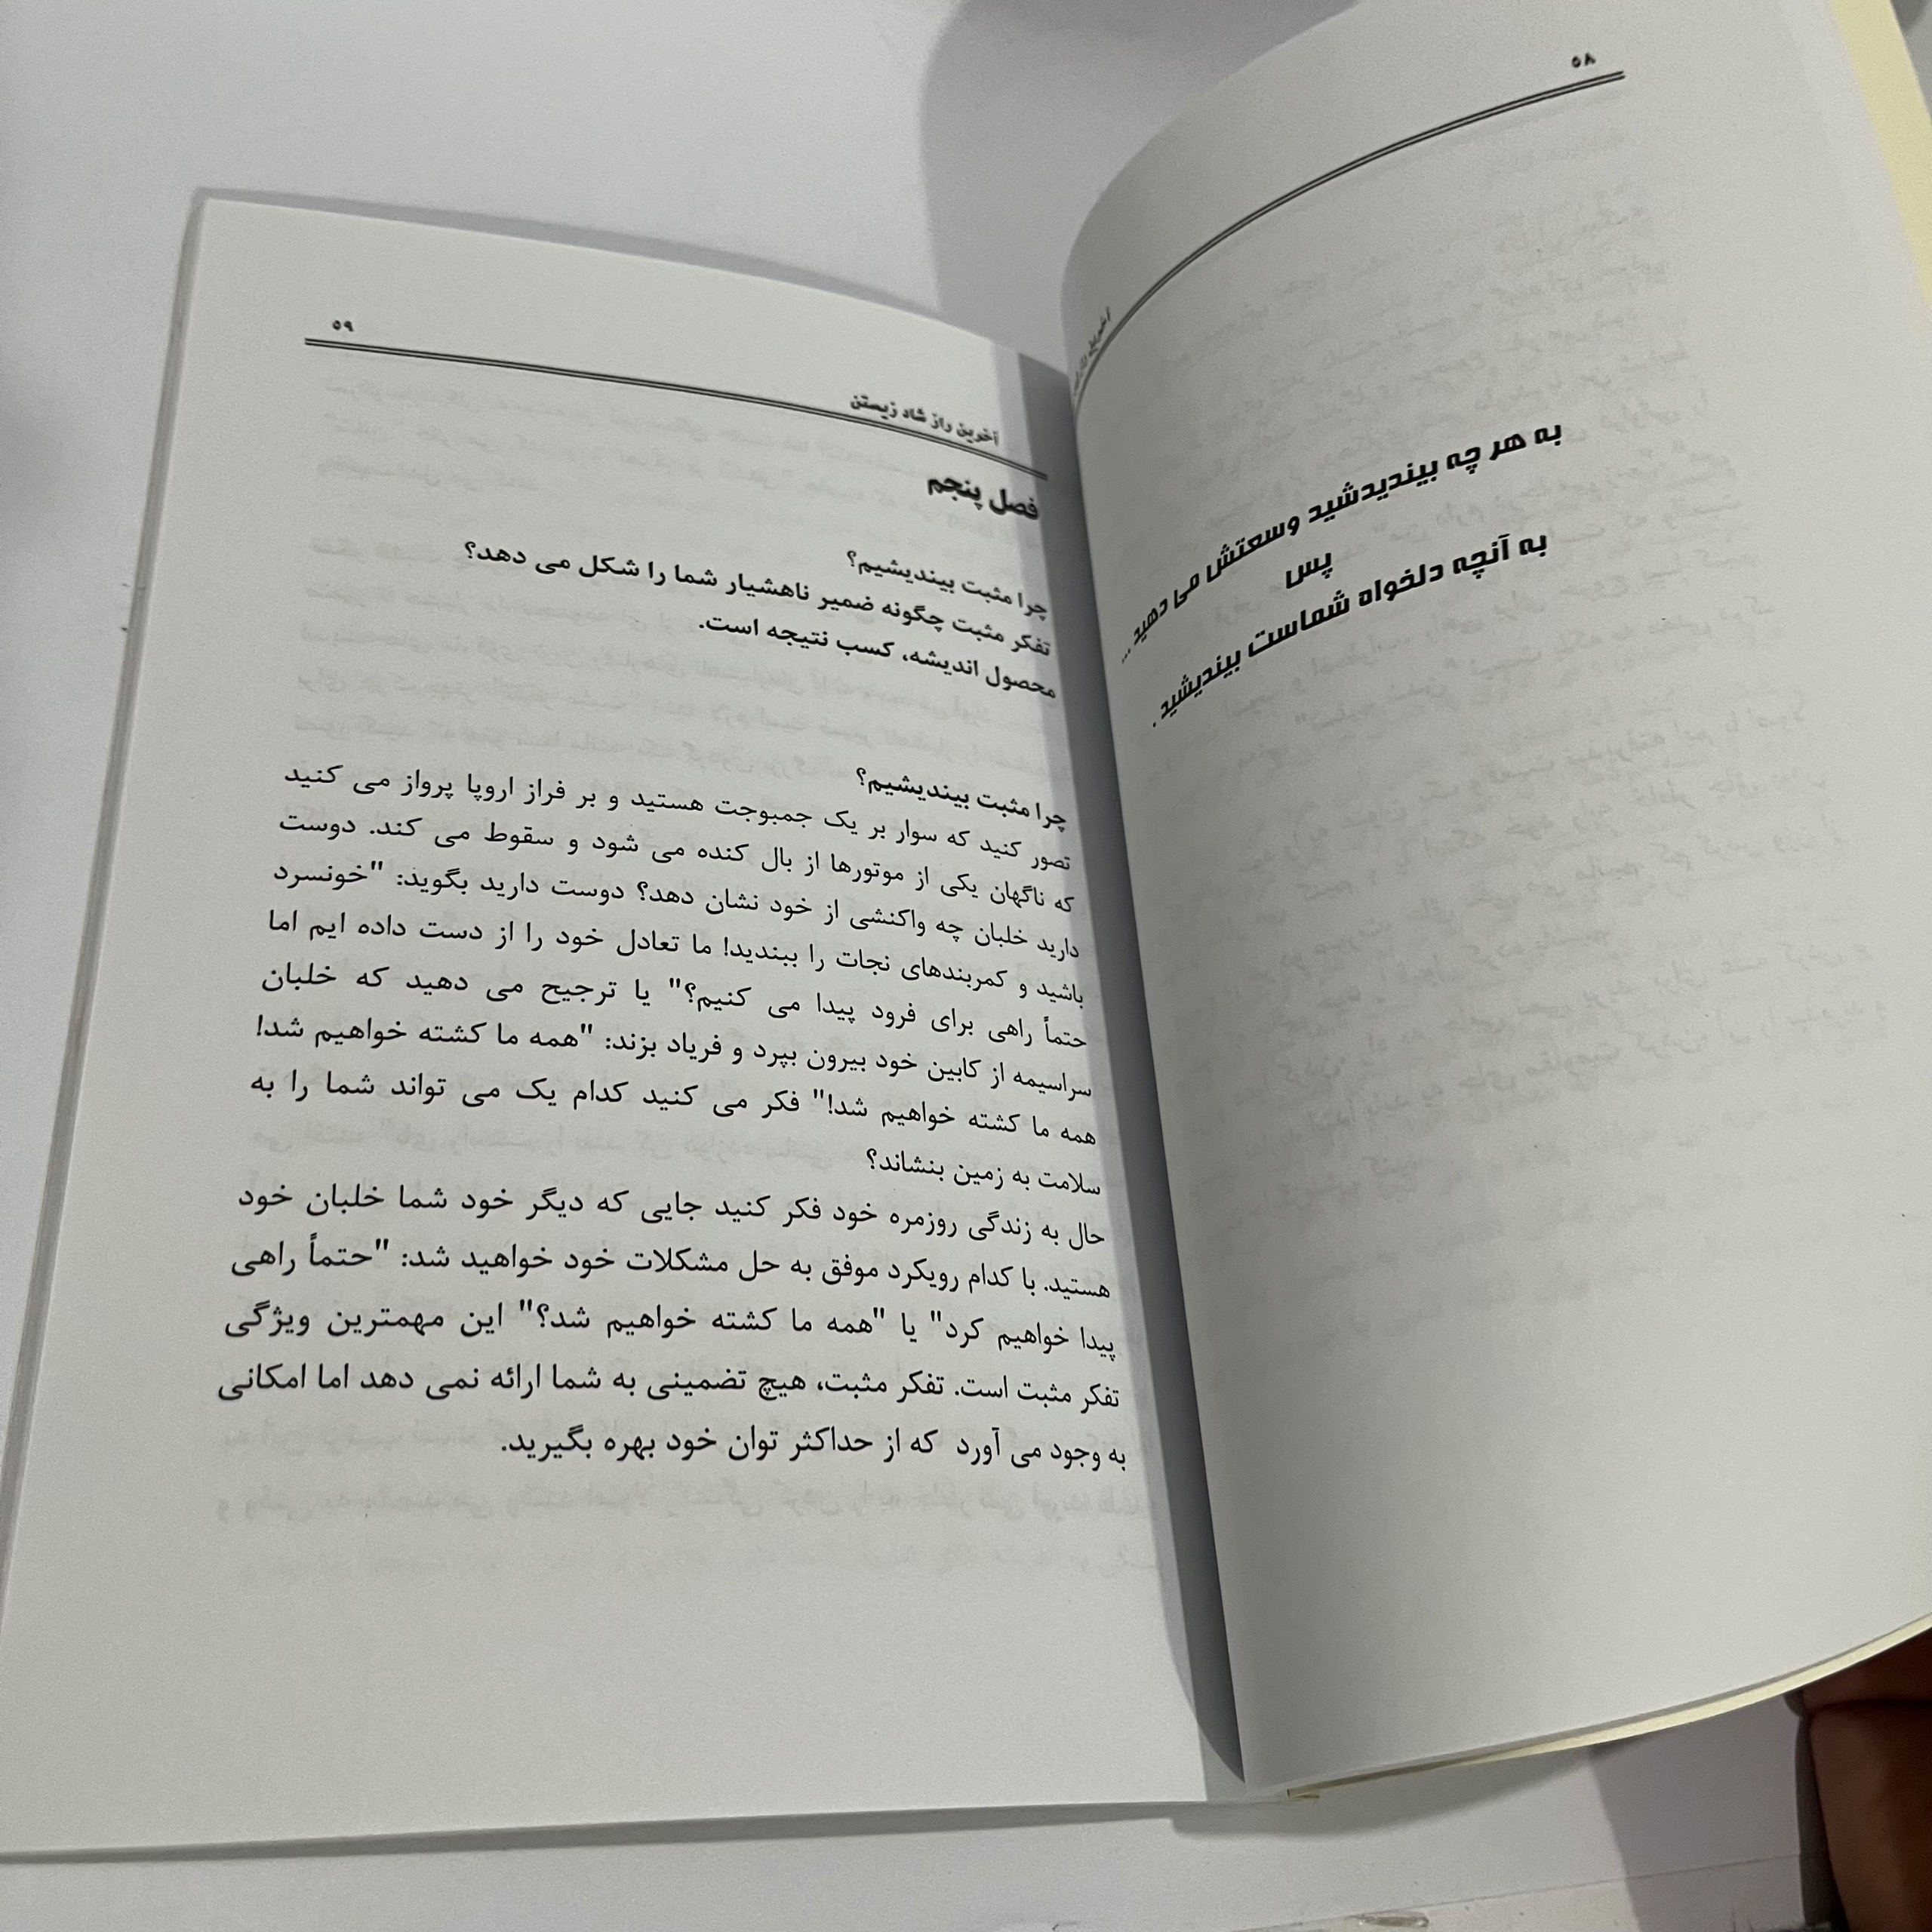 ۵۸
به هر چه بیندیدشید وسعتش می دهید ...
پس
به آنچه دلخواه شماست بیندیشید .
۵۹
آخرین راز شاد زیستن
فصل پنجم
چرا مثبت بیندیشیم؟
تفکر مثبت چگونه ضمیر ناهشیار شما را شکل می دهد؟
محصول اندیشه، کسب نتیجه است.
چرا مثبت بیندیشیم؟
تصور کنید که سوار بر یک جمبوجت هستید و بر فراز اروپا پرواز می کنید
که ناگهان یکی از موتورها از بال کنده می شود و سقوط می کند. دوست
دارید خلبان چه واکنشی از خود نشان دهد؟ دوست دارید بگوید: "خونسرد
باشید و کمربندهای نجات را ببندید! ما تعادل خود را از دست داده ایم اما
حتماً راهی برای فرود پیدا می کنیم؟" یا ترجیح می دهید که خلبان
سراسیمه از کابین خود بیرون بپرد و فریاد بزند: "همه ما کشته خواهیم شد!
همه ما کشته خواهیم شد!" فکر می کنید کدام یک می تواند شما را به
سلامت به زمین بنشاند؟
حال به زندگی روزمره خود فکر کنید جایی که دیگر خود شما خلبان خود
هستید. با کدام رویکرد موفق به حل مشکلات خود خواهید شد: "حتماً راهی
پیدا خواهیم کرد" یا "همه ما کشته خواهیم شد؟" این مهمترین ویژگی
تفکر مثبت است. تفکر مثبت، هیچ تضمینی به شما ارائه نمی دهد اما امکانی
به وجود می آورد که از حداکثر توان خود بهره بگیرید.